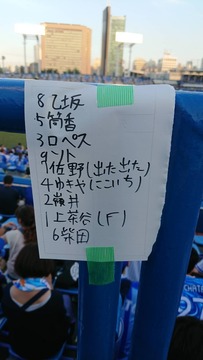 8乙坂
5筒香
3ロペス
9ソト
7佐野(出た出た)
4ゆきや(にこいち)
2嶺井
1上茶谷(F)
6柴田